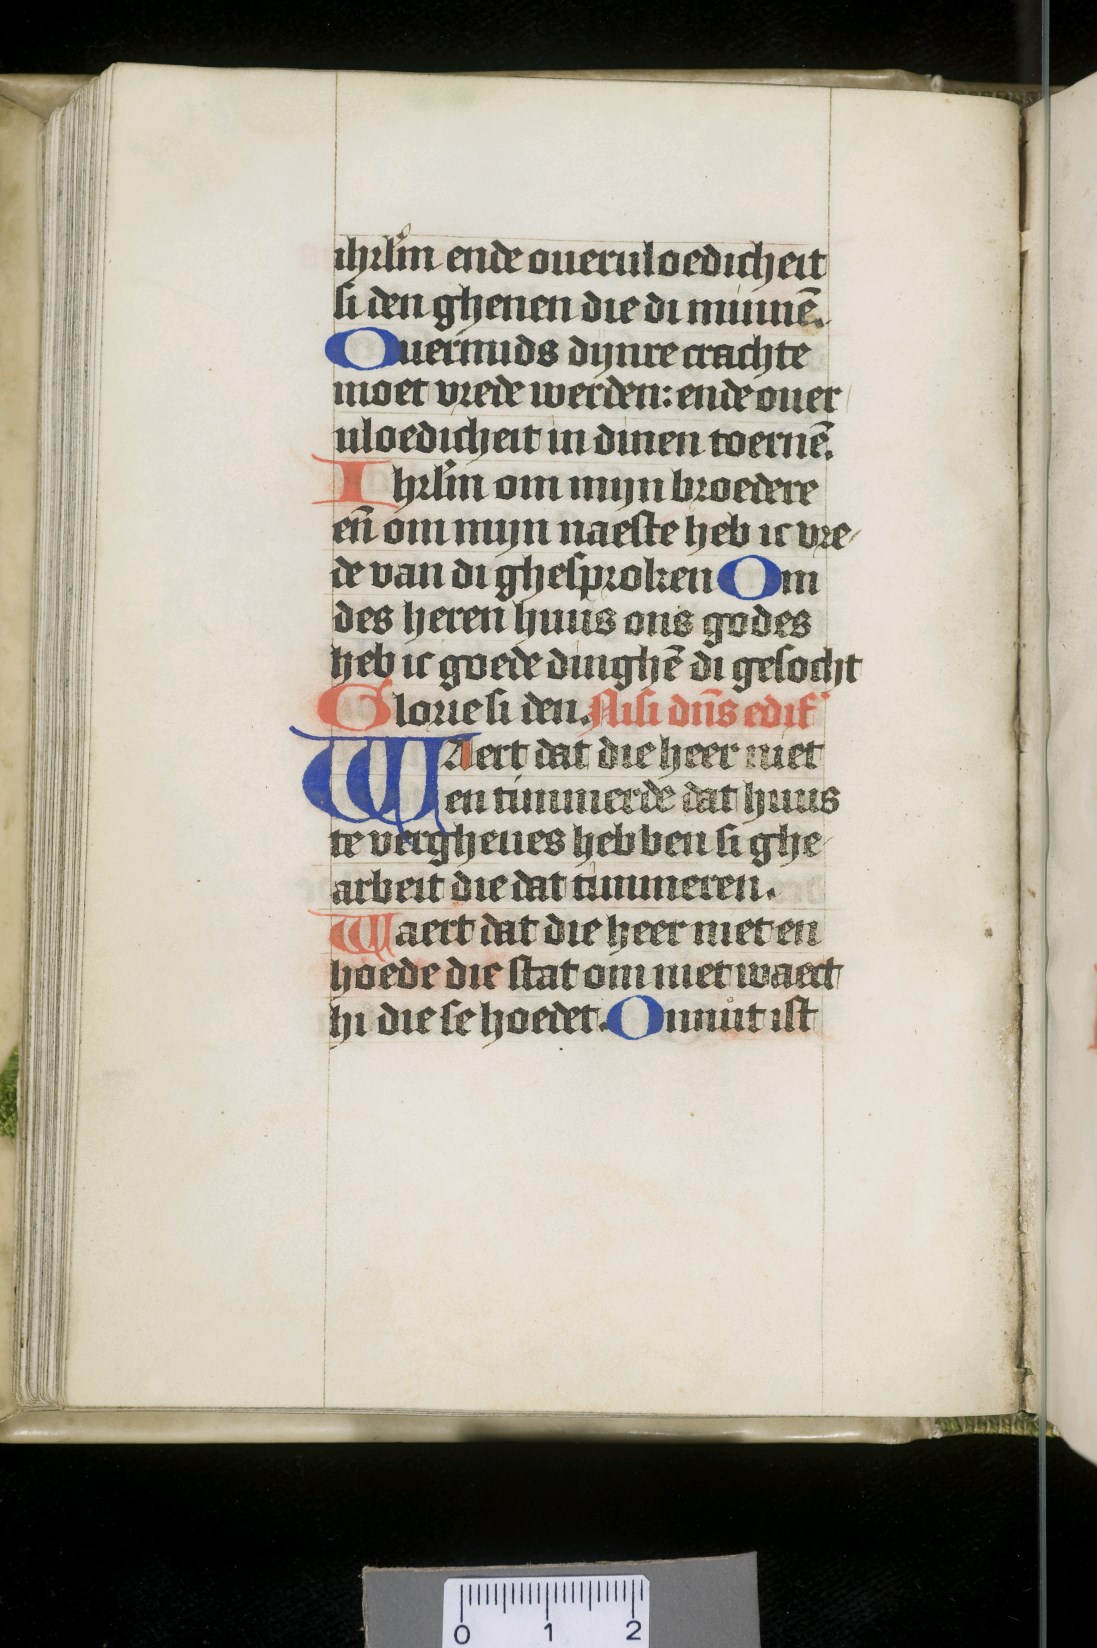 ihrl'm ende oueruloedicheit
si den ghenen die di minnē.
Ouermids dynre crachte
moet vrede werden: ende ouer
uloedicheit in dinen toernē.
Ihrl'm om mijn broedere
eñ om mijn naeste heb ic vre-
de van di ghesproken Om
des heren huus ons godes
heb ic goede dinghē di gesocht
Glorie si den. Nisi dñs edif'
WAert dat die heer niet
en timmerde dat huus
te vergheues hebben si ghe-
arbeit die dat timmeren.
Waert dat die heer niet en
hoede die stat om niet waect
hi die se hoedet. Onnut ist
0 1 2